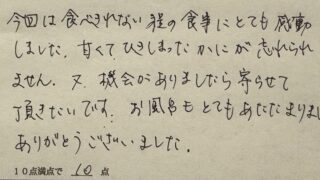 今回は食べきれない程の食事にとても感動
しました。甘くてひきしまったかにが忘れられ
ません。又、機会がありましたら寄らせて
頂きたいです。お風呂もとてもあたたまりまし
ありがとうございました。
10点満点で 10 点